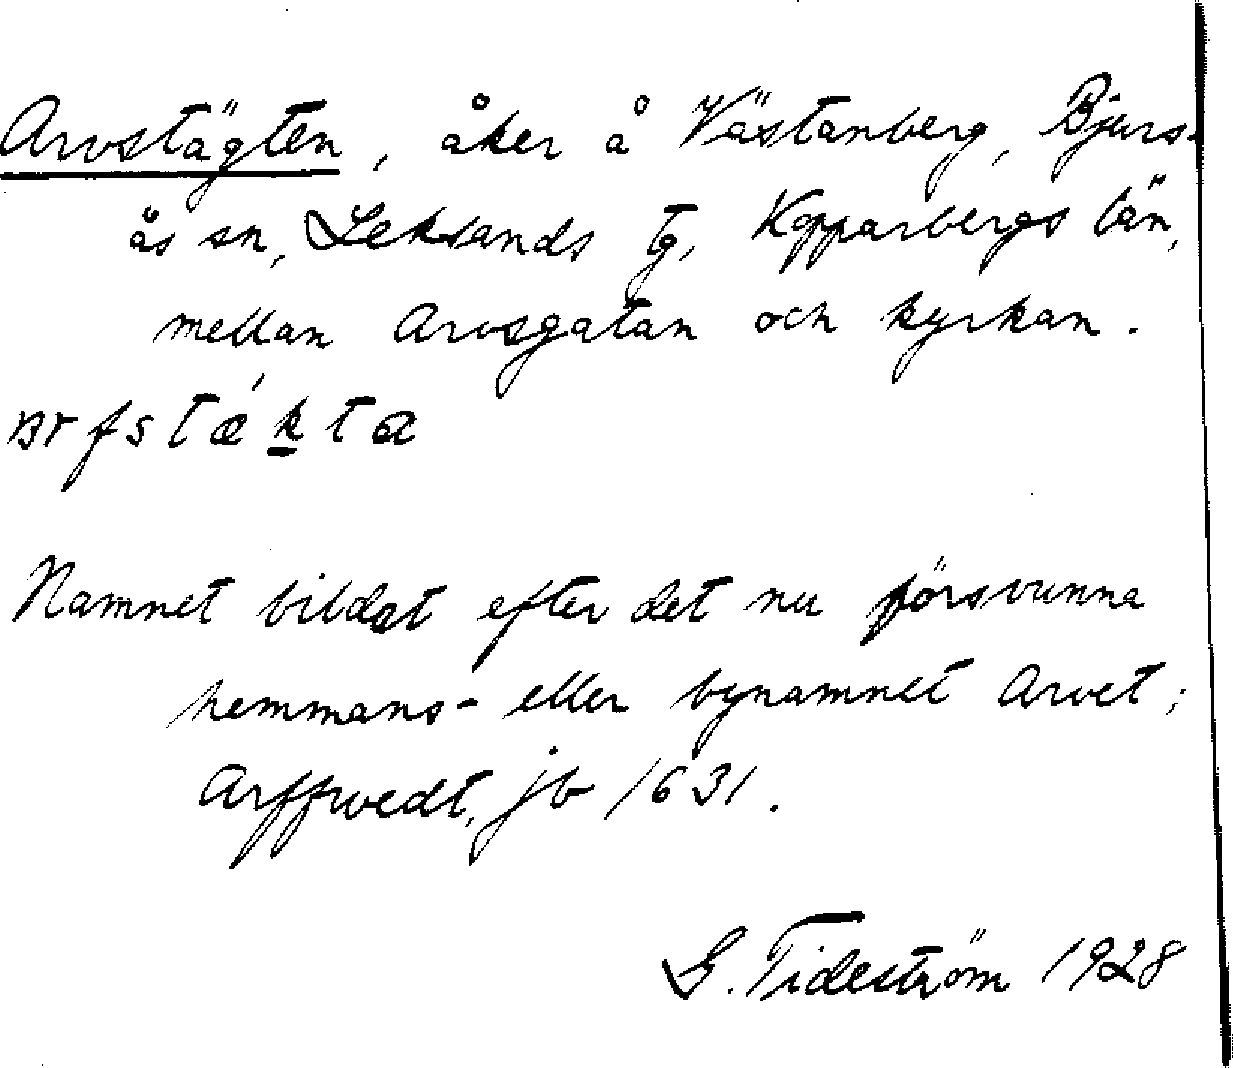 Arvstägten, åker å Västanberg, Bjurs-
ås sn, Leksands tg, Kopparbergs län,
mellan Arvsgatan och kyrkan.
Namnet bildat efter det nu försvunna
hemmans- eller bynamnet Arvet;
Arffwedt, jb 1631.
G. Tideström 1928